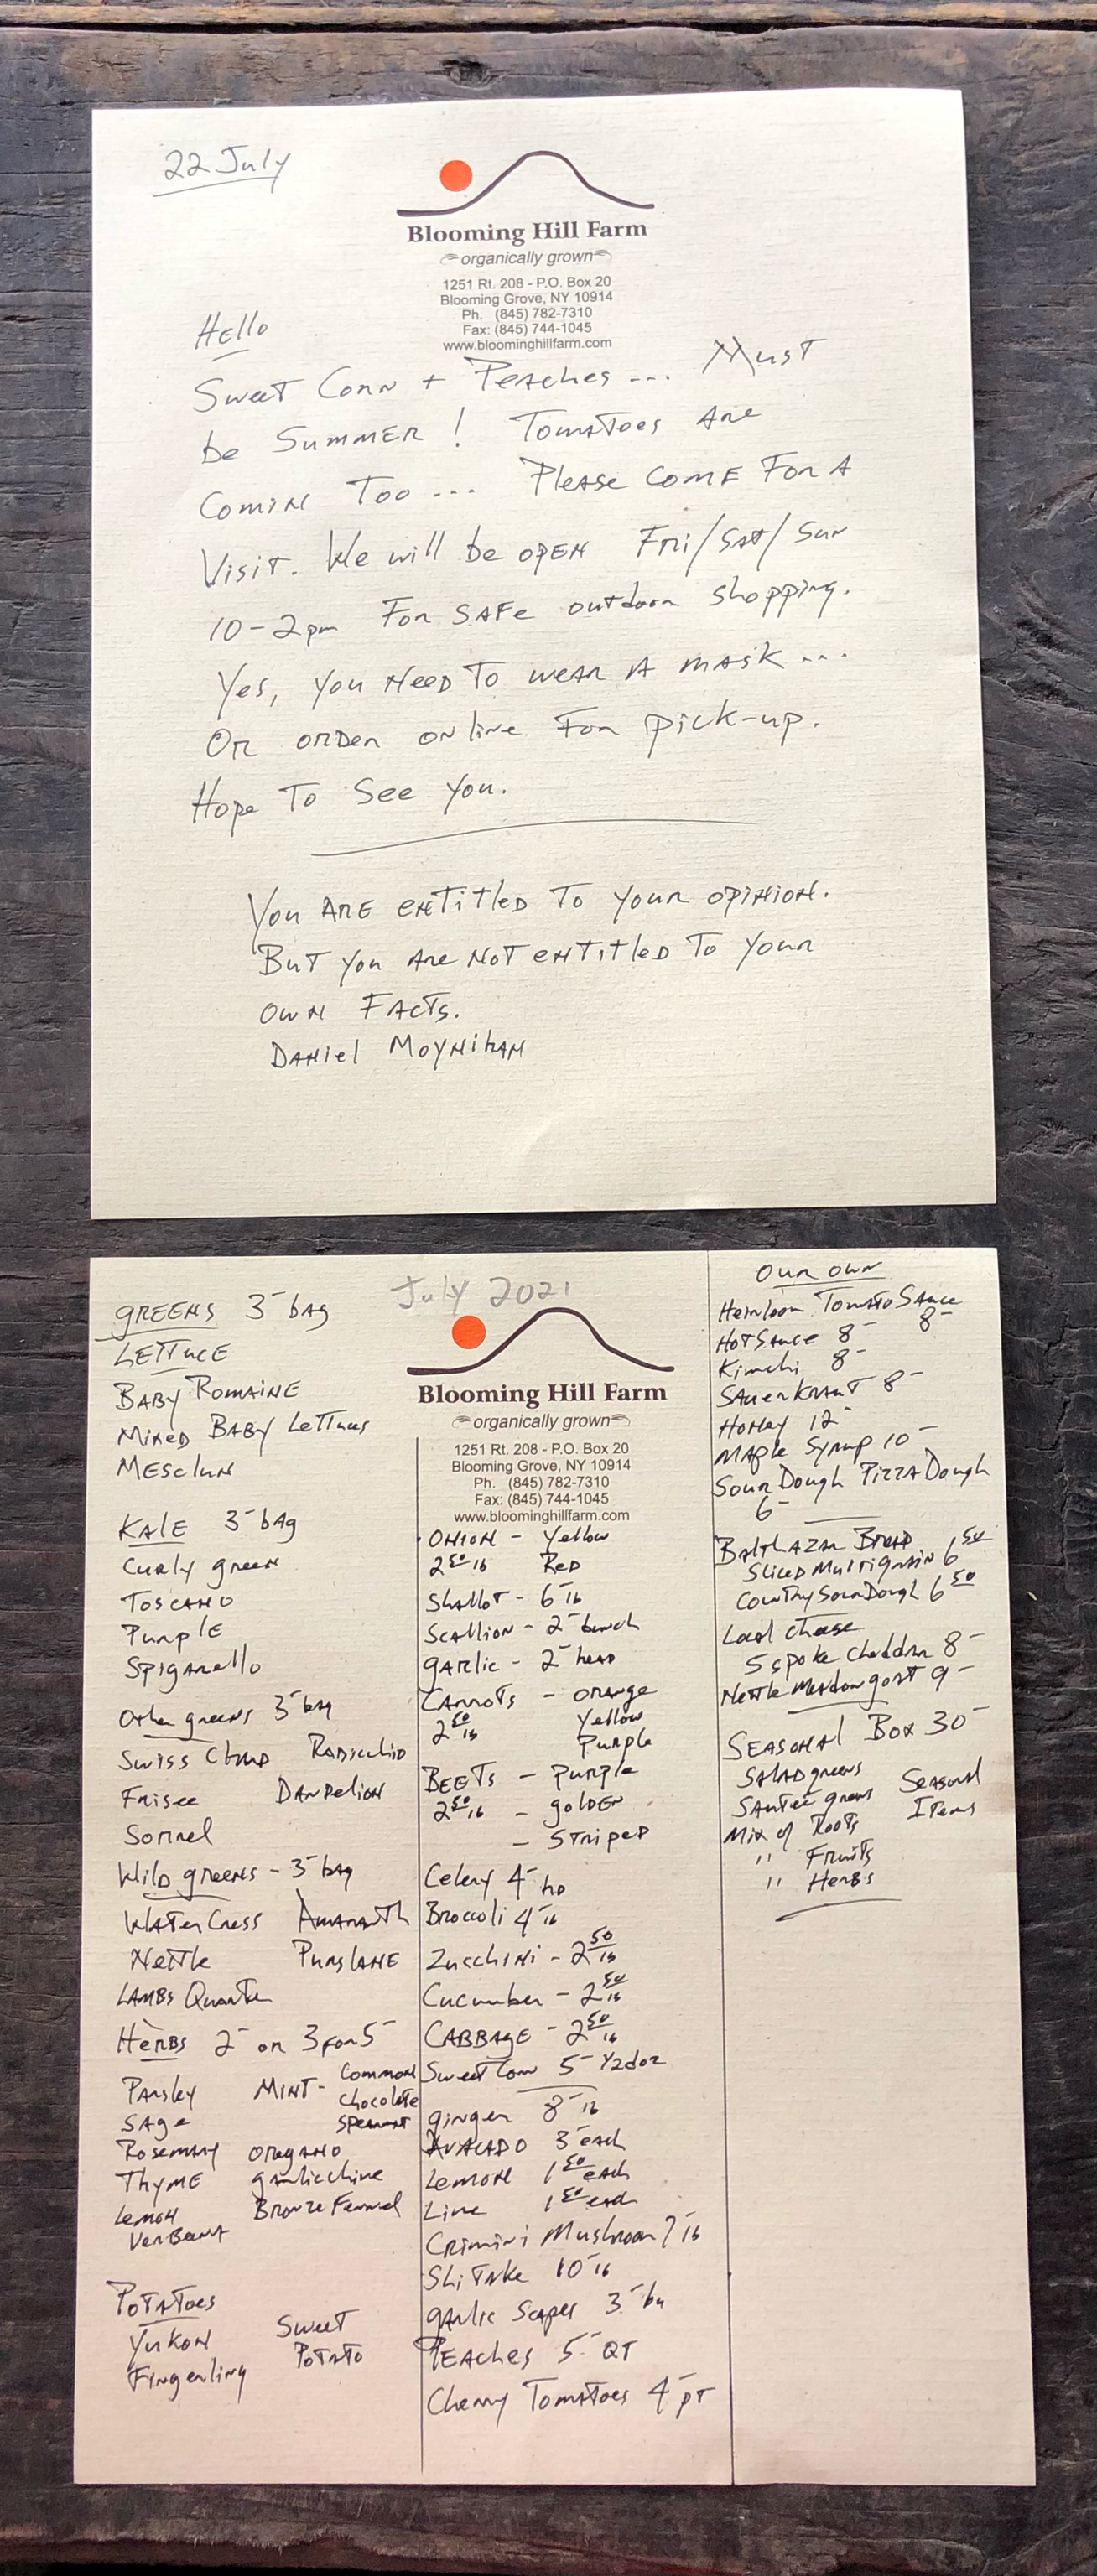 22 July
Blooming Hill Farm
organically grown
1251 Rt. 208 - P.O. Box 20
Blooming Grove, NY 10914
Ph. (845) 782-7310
Fax: (845) 744-1045
www.bloominghillfarm.com
Hello
Sweet Corn + Peaches ... Must
be Summer! Tomatoes Are
Comin Too ... Please Come For A
Visit. We will be open Fri/Sat/Sun
10-2pm For Safe outdoor shopping.
Yes, you Need To wear A mask ...
Or order online For pick-up.
Hope To See You.
You Are entitled To your opinion.
But you Are Not entitled To your
own Facts.
Daniel Moynihan
July 2021
Blooming Hill Farm
organically grown
1251 Rt. 208 - P.O. Box 20
Blooming Grove, NY 10914
Ph. (845) 782-7310
Fax: (845) 744-1045
www.bloominghillfarm.com
Greens 3- bag
Lettuce
Baby Romaine
Mixed Baby Lettuces
Mesclun
Kale 3- bag
Curly green
Toscano
Purple
Spigarello
Other greens 3- bag
Swiss Chard Radicchio
Frisee Dandelion
Sorrel
Wild greens - 3- bag
WaterCress Amaranth
Nettle Purslane
Lambs Quarter
Herbs 2- or 3 for 5-
Parsley Mint - Common
Chocolate
Sage Spearmint
Rosemary Oregano
Thyme garlic chive
Lemon Bronze Fennel
Verbena
Potatoes
Yukon Sweet
Fingerling Potato
Onion - Yellow
2 50 lb Red
Shallot - 6- lb
Scallion - 2- bunch
garlic - 2- head
Carrots - orange
2 50 lb Yellow
Purple
Beets - Purple
2 50 lb - golden
- Striped
Celery 4- hd
Broccoli 4- lb
Zucchini - 2 50 lb
Cucumber - 2 50 lb
Cabbage - 2 50 lb
Sweet Corn 5- 1/2 doz
ginger 8- lb
Avacado 3- each
Lemon 1 50 each
Lime 1 50 each
Crimini Mushroom 7- lb
Shitake 10- lb
garlic Scapes 3- bu
Peaches 5- QT
Cherry Tomatoes 4- pt
Our own
Heirloom Tomato Sauce
8-
Hot Sauce 8-
Kimchi 8-
Sauerkraut 8-
Honey 12-
Maple Syrup 10-
Sour Dough Pizza Dough
6-
Balthazar Bread
Sliced Multigrain 6 50
Country Sour Dough 6 50
Local Cheese
5 spoke Cheddar 8-
Nettle Meadow goat 9-
Seasonal Box 30-
Salad greens
Sautee greens Seasonal
Mix of Roots Items
" Fruits
" Herbs